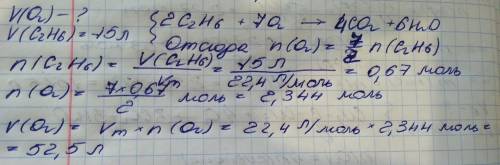 V(O₂) - ?
V(C₂H₆) = 15 л
2C₂H₆ + 7O₂ → 4CO₂ + 6H₂O
Отсюда n(O₂) = 7/2 n(C₂H₆)
n(C₂H₆) = V(C₂H₆)/Vm = 15 л/22,4 л/моль = 0,67 моль
n(O₂) = 7×0,67/2 моль = 2,344 моль
V(O₂) = Vm × n(O₂) = 22,4 л/моль × 2,344 моль =
= 52,5 л